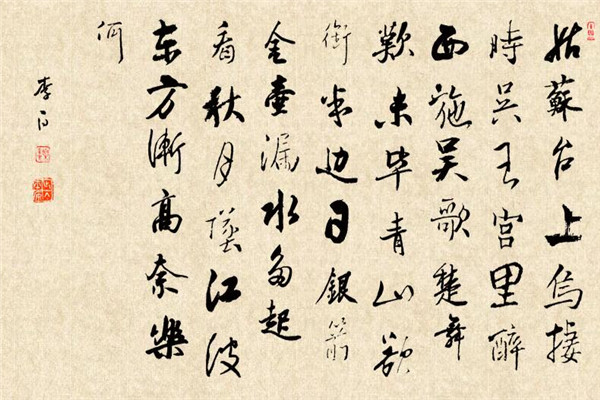 姑蘇台上烏棲
時吴王宮里醉
西施吴歌楚舞
歡未毕青山欲
銜半边日銀箭
金壺漏水多起
看秋月墜江波
东方漸高奈樂
何
李白